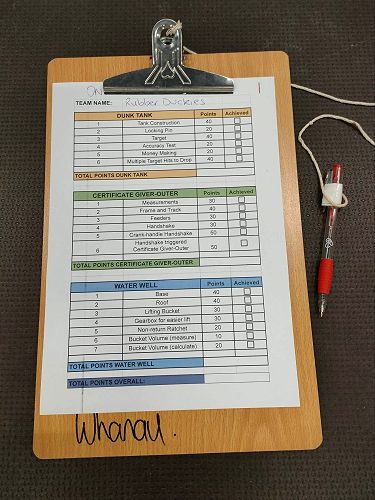 ON
TEAM NAME: Rubber Duckies
DUNK TANK Points Achieved
1 Tank Construction 40
2 Locking Pin 20
3 Target 40
4 Accuracy Test 20
5 Money Making 20
6 Multiple Target Hits to Drop 40
TOTAL POINTS DUNK TANK
CERTIFICATE GIVER-OUTER Points Achieved
1 Measurements 30
2 Frame and Track 40
3 Feeders 30
4 Handshake 30
5 Crank-handle Handshake 50
Handshake triggered
6 Certificate Giver-Outer 50
TOTAL POINTS CERTIFICATE GIVER-OUTER
WATER WELL Points Achieved
1 Base 40
2 Roof 40
3 Lifting Bucket 30
4 Gearbox for easier lift 30
5 Non-return Ratchet 20
6 Bucket Volume (measure) 10
7 Bucket Volume (calculate) 20
TOTAL POINTS WATER WELL
TOTAL POINTS OVERALL:
Whanau.